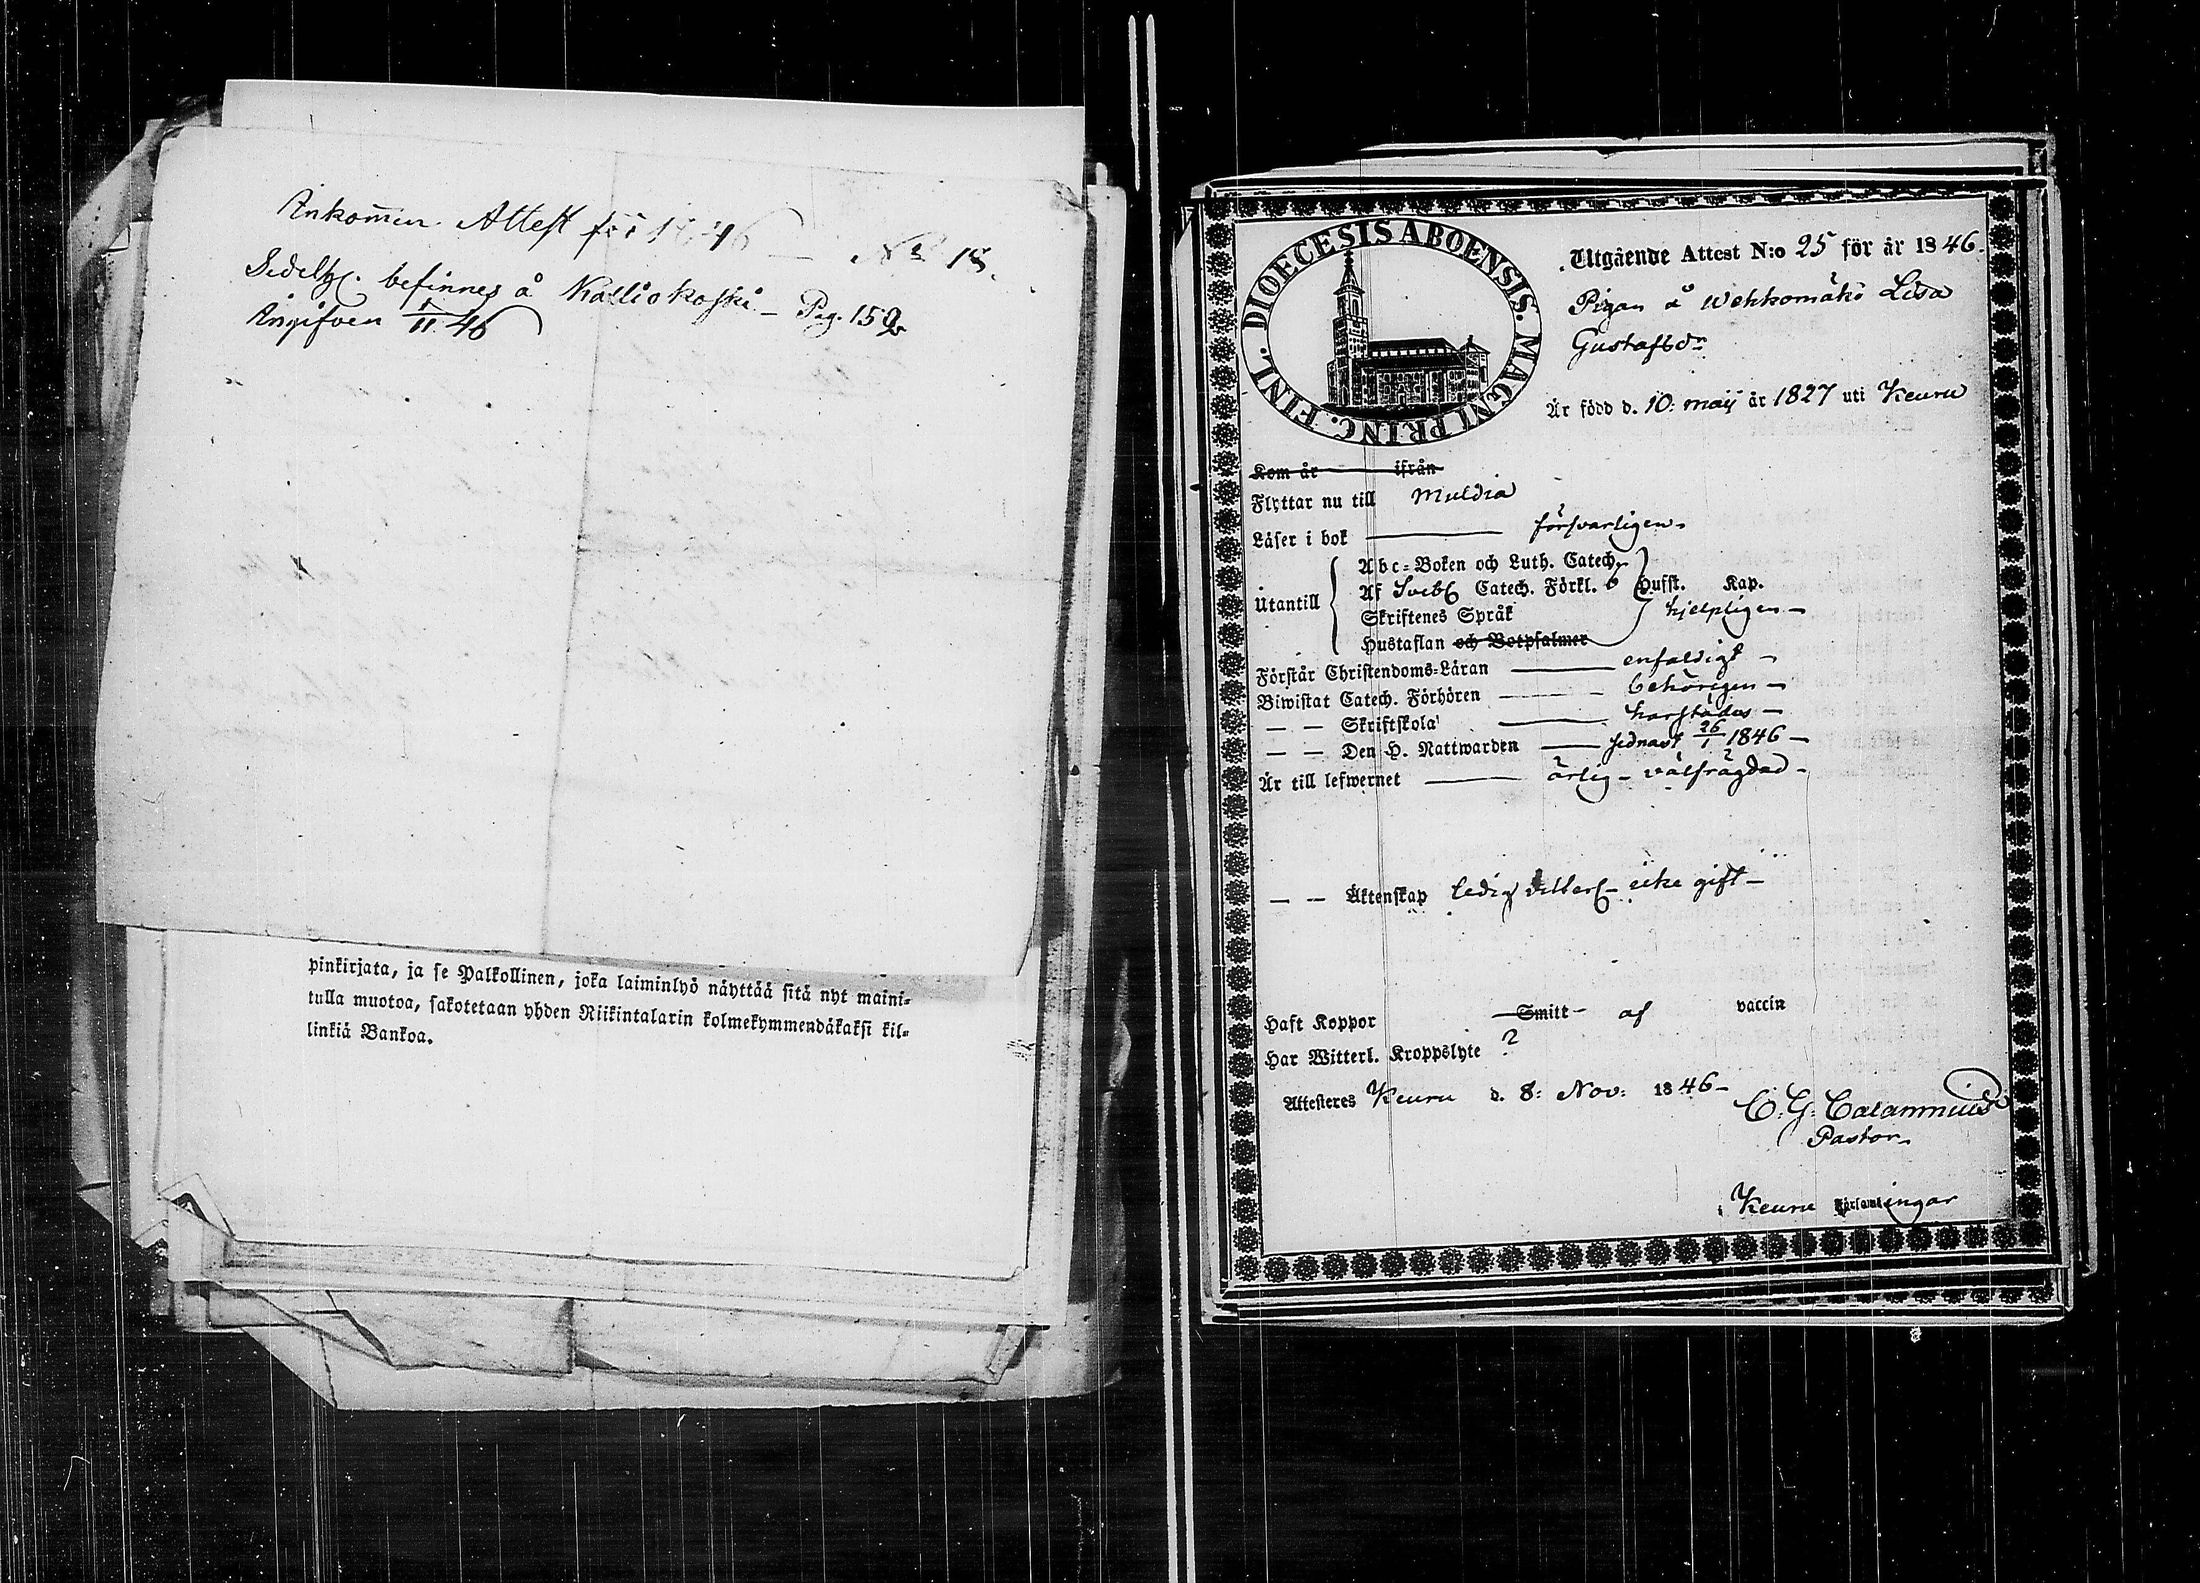 Ankommen Attest för 1846 — No 18.
Sedelh. befinnes å Kalliokoski — Pag. 159.
Angifven 1/11 46
pinkirjata, ja se Palkollinen, joka laiminlyö näyttää sitä nyt maini-
tulla muotoa, sakotetaan yhden Riikintalarin kolmekymmendäkaksi kil-
linkiä Bankoa.
FINL. DIOECESIS ABOENSIS. MAGNI PRINC.
Utgående Attest N:o 25 för år 1846.
Pigan å Wehkomäki Lisa
Gustafsdr
Är född d. 10: maij år 1827 uti Keuru
Kom år ifrån
Flyttar nu till Muldia
Läser i bok — försvarligen —
Abc-Boken och Luth. Catech.
Af Svebel Catech. Förkl. 6 Hufst. Kap.
Utantill
Skriftenes Språk hjelpligen —
Hustaflan och Botpsalmer
Förstår Christendoms-Läran — enfaldigt —
Biwistat Catech. Förhören — behörigen —
— — Skriftskola — harstädes —
— — Den H. Nattwarden — sednast 26/1 1846 —
Är till lefwernet — ärlig — välfrägdad —
— — Äktenskap ledig — icke gift —
Haft Koppor Smitt — af vaccin
Har Witterl. Kroppslyte ?
Attesteres Keuru d. 8: Nov: 1846 —
C. G. Calamnius
Pastor
Keuru Församlingar